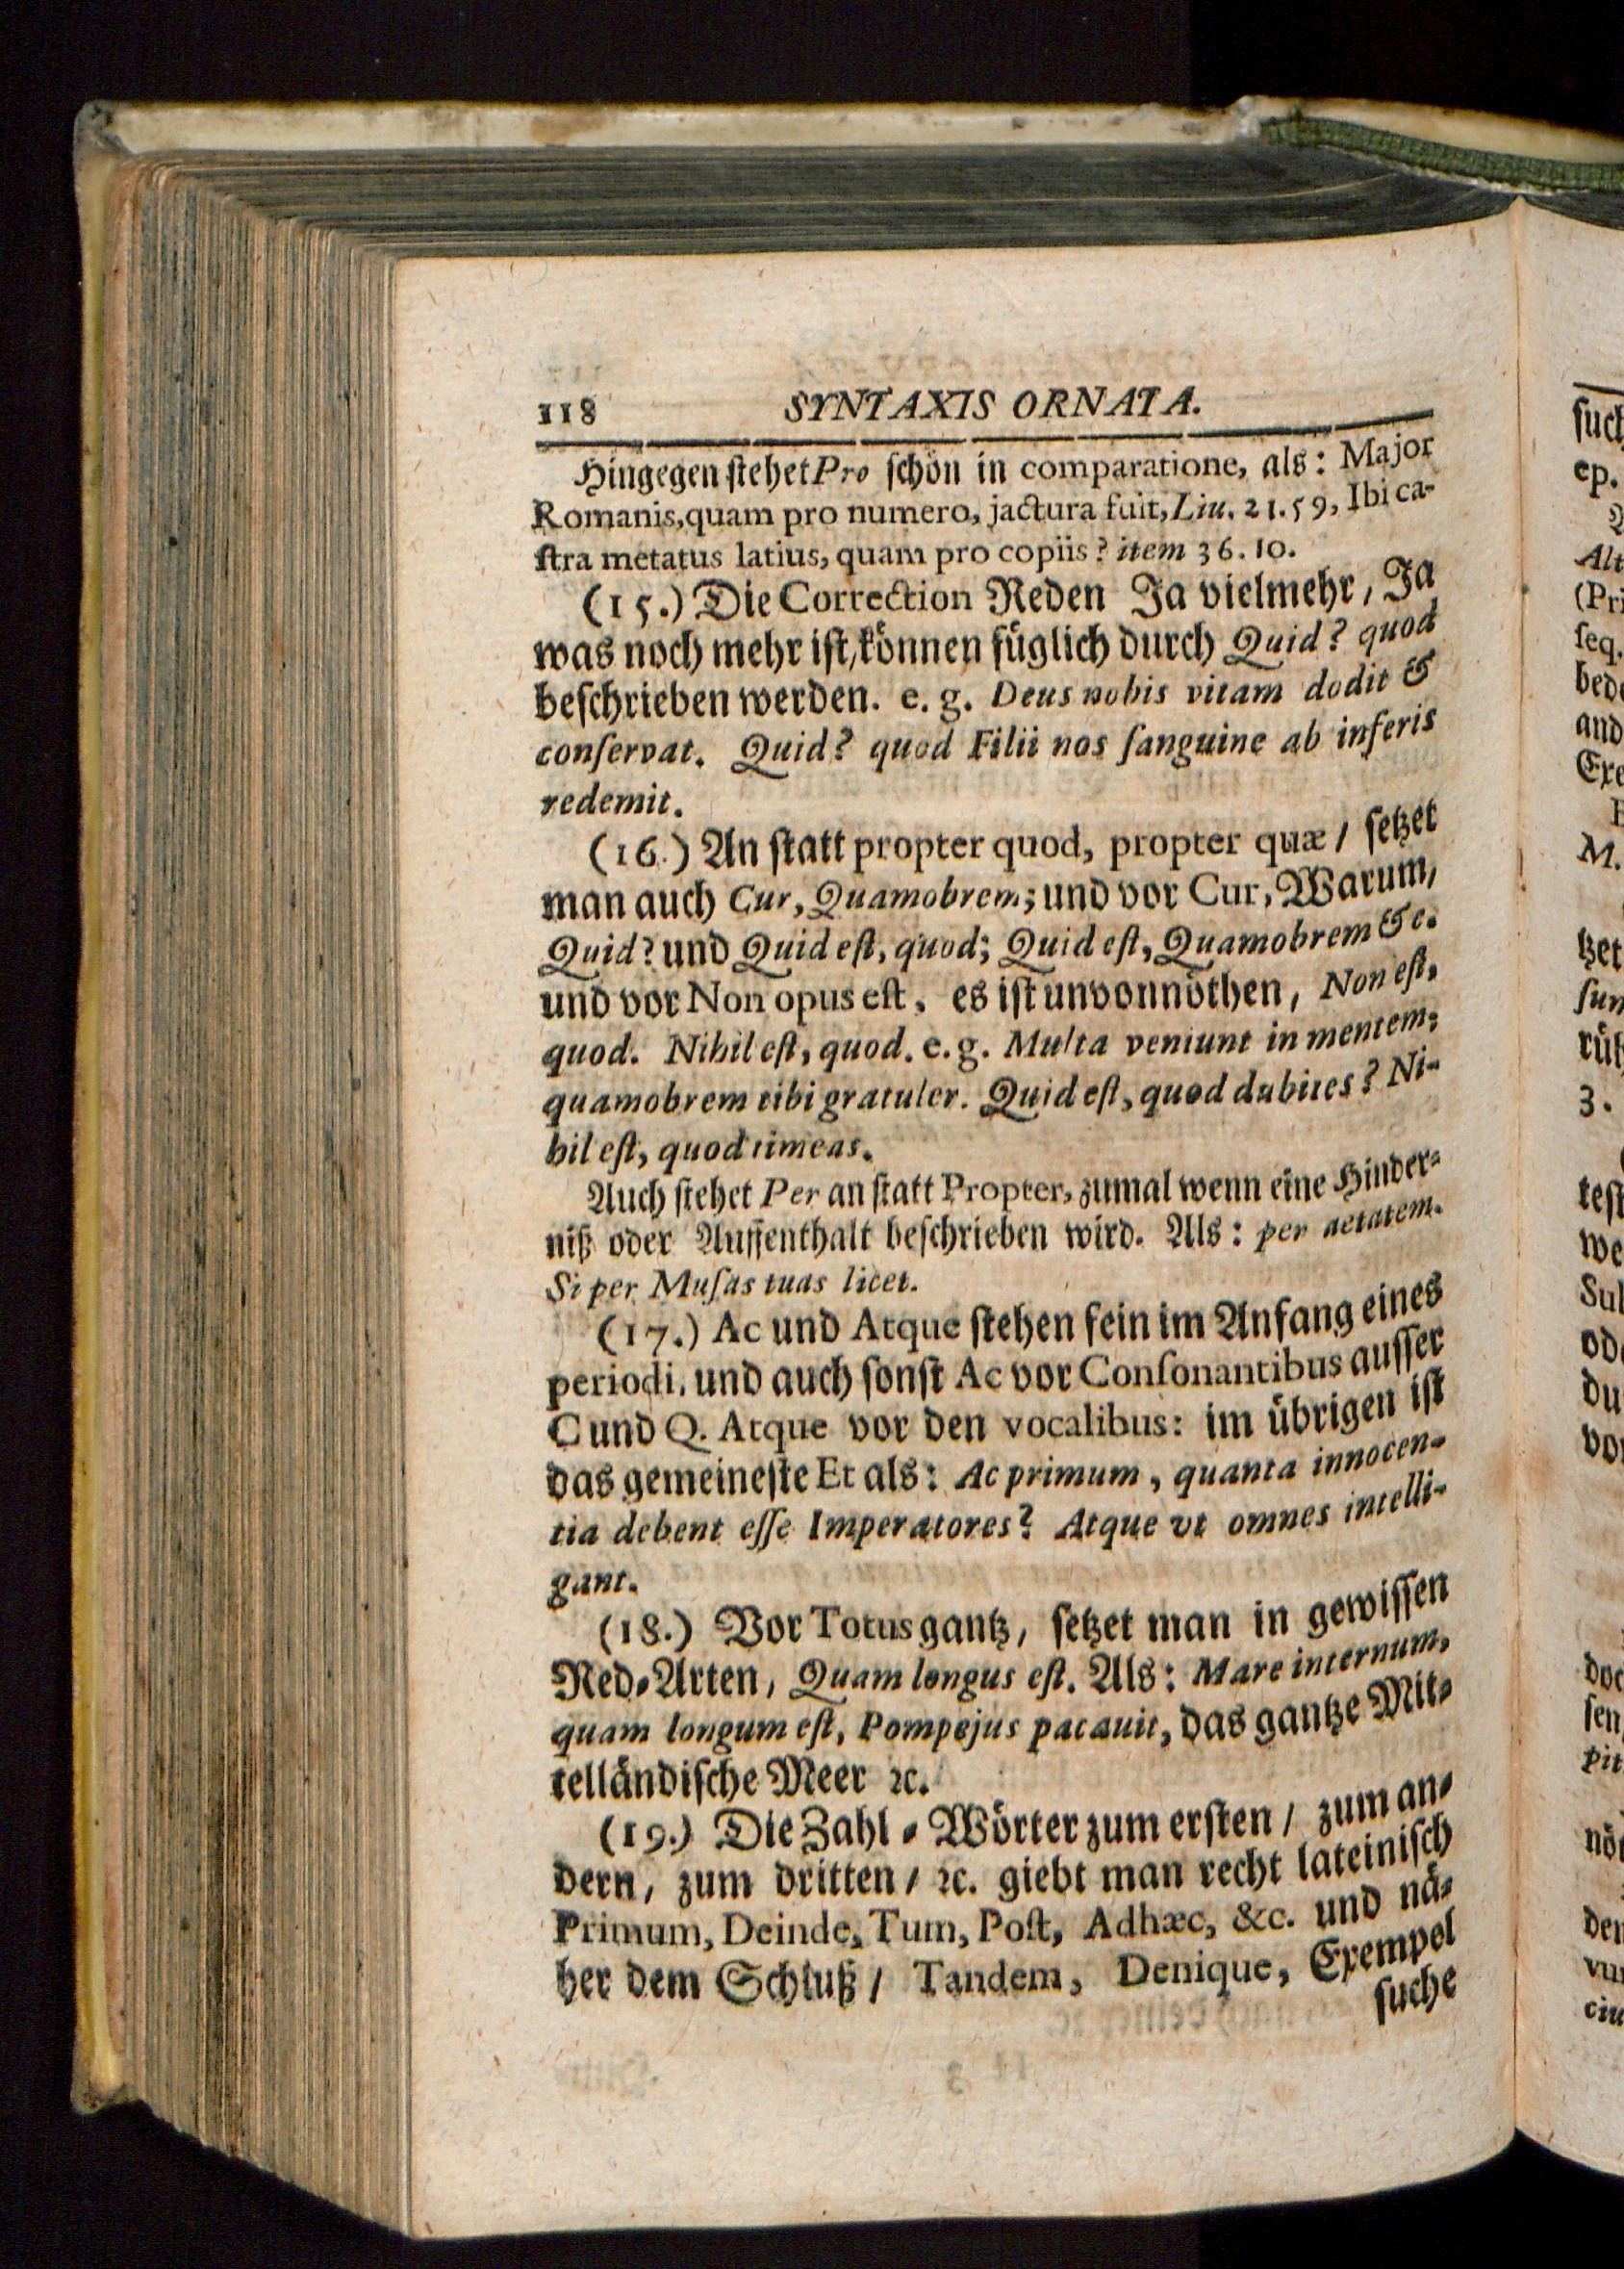 118 SYNTAXIS ORNATA.
Hingegen stehet Pro schön in comparatione, als: Major
Romanis, quam pro numero, jactura fuit, Liu. 21. 59, Ibi ca-
ſtra metatus latius, quam pro copiis? item 36. 10.
(15.) Die Correction Reden Ja vielmehr, Ja
was noch mehr iſt, können füglich durch Quid? quod
beſchrieben werden. e. g. Deus nobis vitam dedit &
conſervat. Quid? quod Filii nos ſanguine ab inferis
redemit.
(16.) An ſtatt propter quod, propter quæ / ſetzet
man auch Cur, Quamobrem; und vor Cur, Warum,
Quid? und Quid eſt, quod; Quid eſt, Quamobrem &c.
und vor Non opus eſt, es iſt unvonnöthen, Non eſt,
quod. Nihil eſt, quod. e. g. Multa veniunt in mentem;
quamobrem tibi gratuler. Quid eſt, quod dubites? Ni-
hil eſt, quod timeas.
Auch ſtehet Per an ſtatt Propter, zumal wenn eine Hinder-
niß oder Auffenthalt beſchrieben wird. Als: per aetatem.
Si per Muſas tuas licet.
(17.) Ac und Atque ſtehen fein im Anfang eines
periodi, und auch ſonſt Ac vor Conſonantibus auſſer
C und Q. Atque vor den vocalibus: im übrigen iſt
das gemeineſte Et als: Ac primum, quanta innocen-
tia debent eſſe Imperatores? Atque vt omnes intelli-
gant.
(18.) Vor Totus gantz, ſetzet man in gewiſſen
Red-Arten, Quam longus eſt. Als: Mare internum,
quam longum eſt, Pompejus pacauit, das gantze Mit-
telländiſche Meer ꝛc.
(19.) Die Zahl-Wörter zum erſten / zum an-
dern, zum dritten / ꝛc. giebt man recht lateiniſch
Primum, Deinde, Tum, Poſt, Adhæc, &c. und nä-
her dem Schluß / Tandem, Denique, Exempel
ſuche
ep.
Alt
(Pri
ſeq.
and
Exe
M.
tzet
3.
we